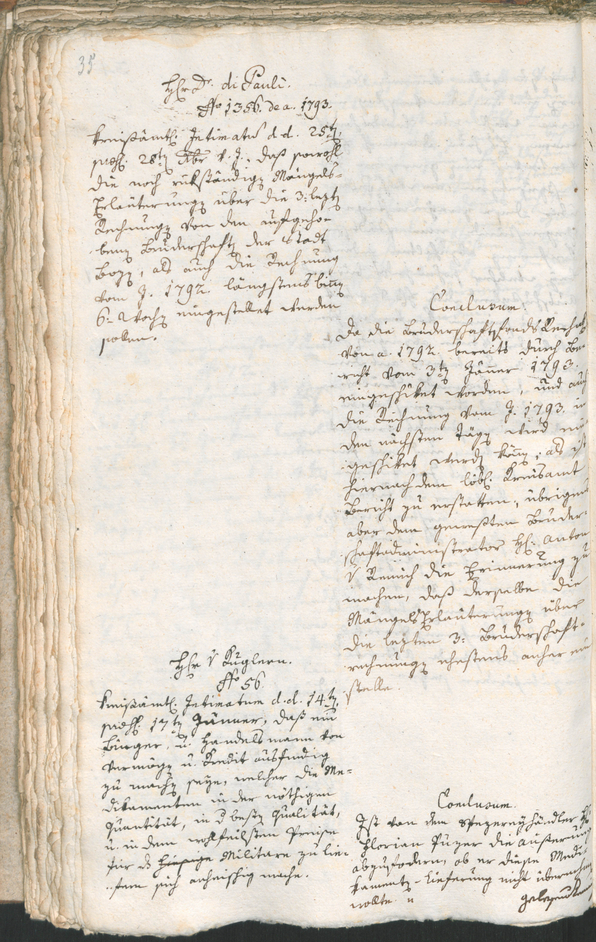 35
Hr. Dr. di Pauli.
No 1356. de a. 1793.
Kreisämtl. Intimatum d. d. 25ten,
praes. 28ten Xbr v. J., daß sowohl
die noch rükständigen Mängels-
Erläuterungen über die 3: letzten
Rechnungen von den aufgeho-
benen Bruderschaften der Stadt
Bozen, als auch die Rechnung
vom J. 1792 längstens binnen
6: Wochen eingestellet werden
sollen.
Conclusum.
Da die Bruderschaftsfonds Rechnung
von a. 1792. bereits durch Be-
richt vom 3ten Jäner 1793.
eingeschiket worden, und auch
die Rechnung vom J. 1793 in
den nächsten Tägen wird ein-
geschiket werden können; als ist
hiernach dem löbl. Kreisamt
Bericht zu erstatten, übrigens
aber dem gewesten Bruder-
schaftsadministrator H. Anton
v Remich die Erinnerung zu
machen, daß derselbe die
Mängels Erläuterungen über
die letzten 3: Bruderschafts-
rechnungen ehestens anher ein-
stelle.
Hr. v Kuglern.
No 56.
Kreisämtl. Intimatum d. d. 14ten,
praes. 17ten Jänner, daß ein
Bürger, u. Handelsmann von
Vermögen u. Kredit ausfindig
zu machen seye, welcher die Me-
dikamenten in der nöthigen
Quantität, in besten Qualität,
u. in dem wohlfeilsten Preise
für das Militare zu lie-
fern sich anheischig mache.
Conclusum.
Ist von dem Spezereyhändler H.
Florian die Äußerung
abzufodern, ob er diese Medi-
kamenten-Lieferung nicht übernehmen
wollte.